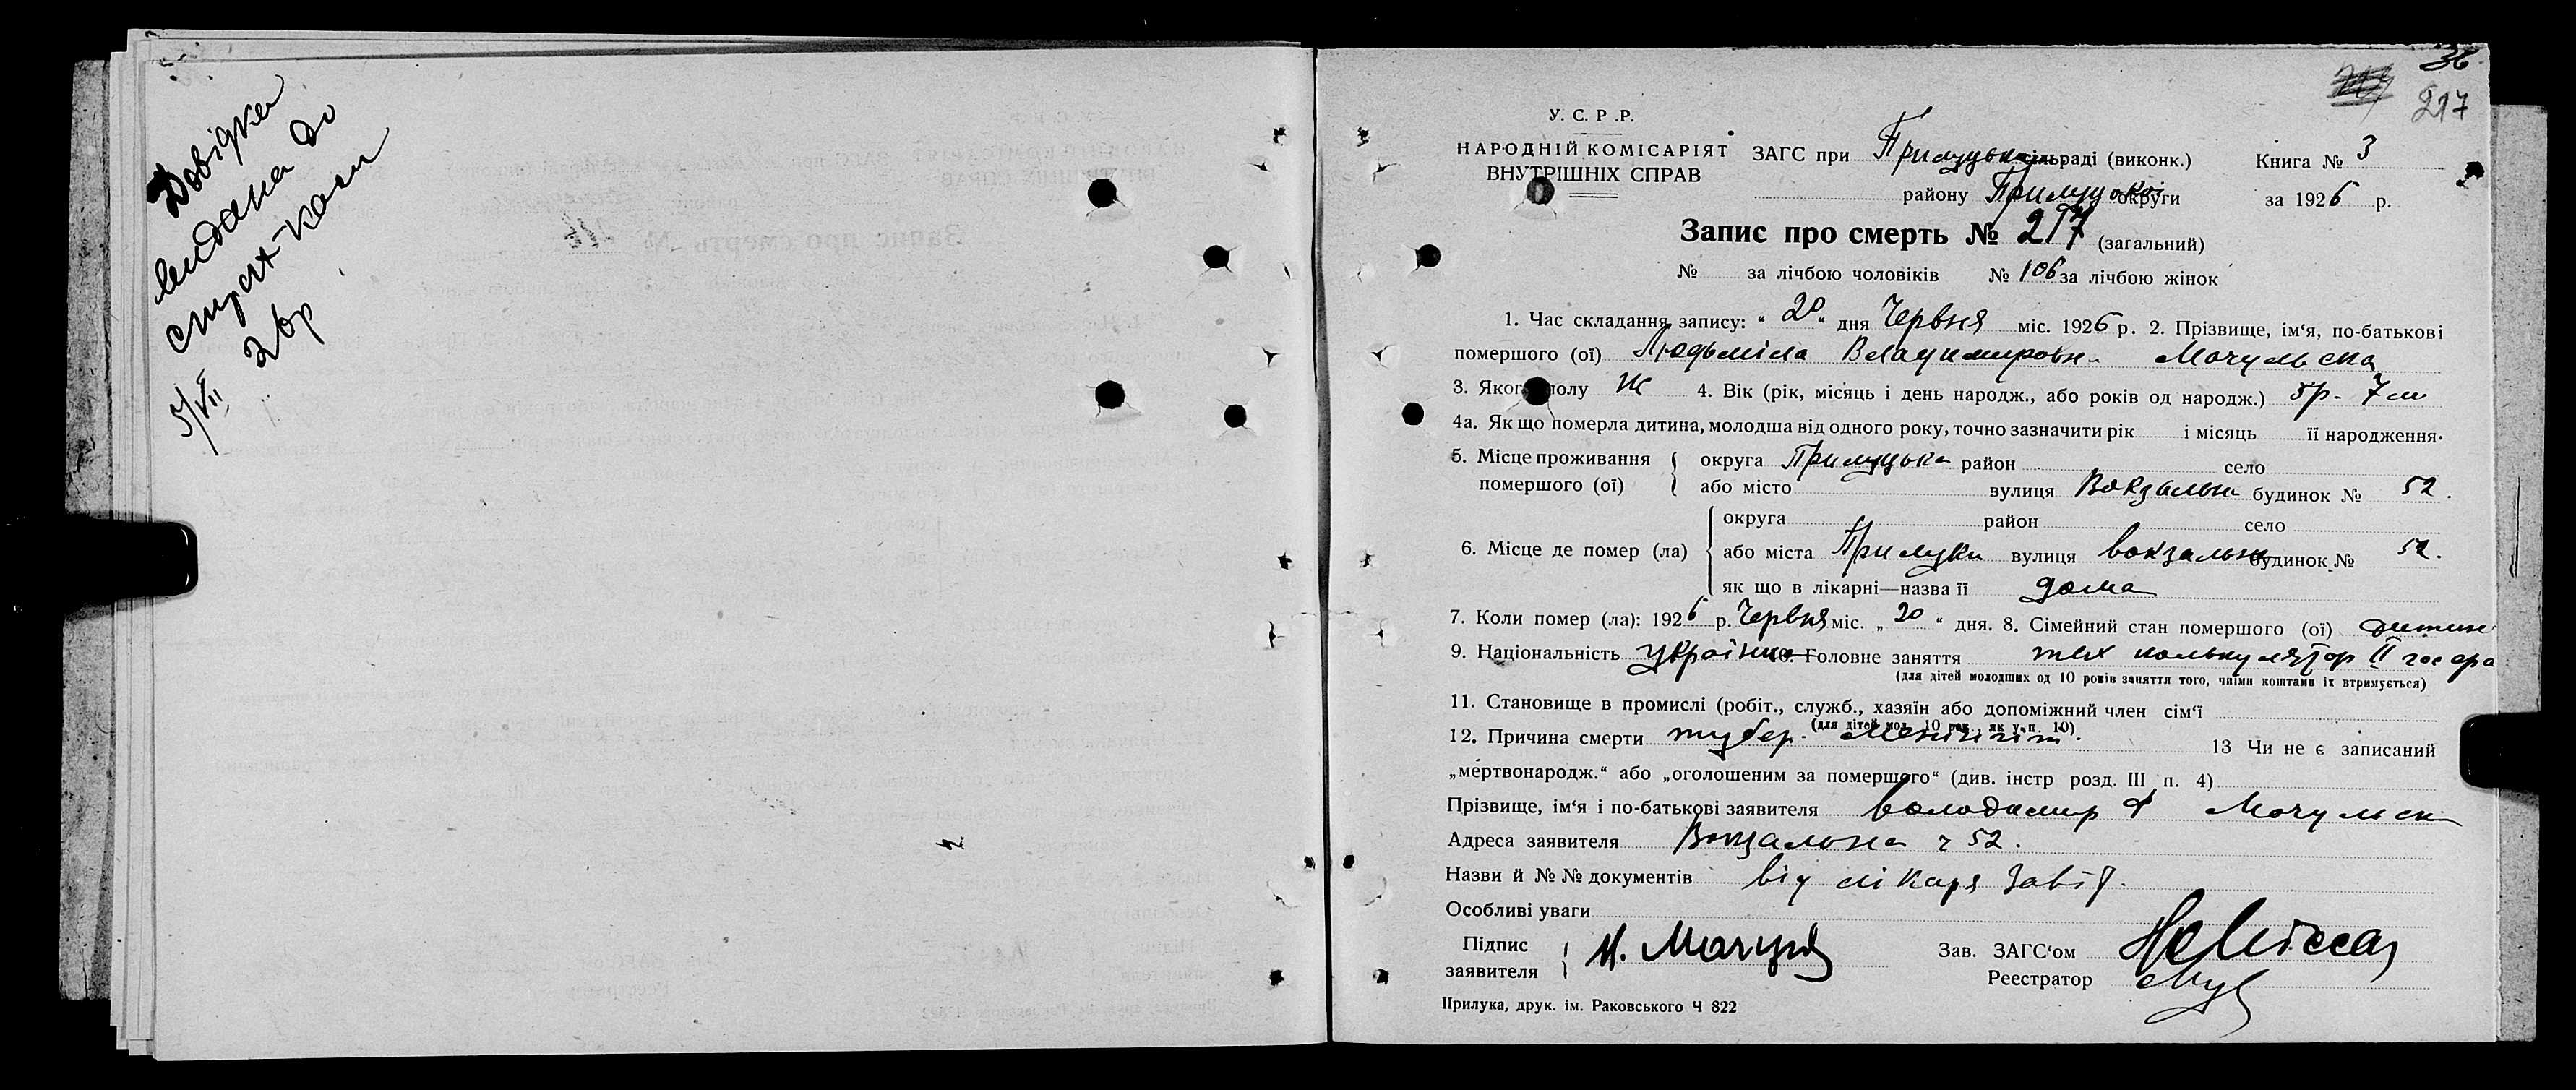 Довідка
видана до
страх-каси
2 вр
5/VII
36.
217
У. С. Р. Р.
НАРОДНІЙ КОМІСАРІЯТ
ВНУТРІШНІХ СПРАВ
ЗАГС при Прилуцькій раді (виконк.) Книга № 3
району Прилуцької округи за 1926 р.
Запис про смерть № 217 (загальний)
№ за лічбою чоловіків № 106 за лічбою жінок
1. Час складання запису: “ 20 “ дня Червня міс. 1926 р. 2. Прізвище, ім‘я, по-батькові
помершого (ої) Людьміла Владимировн. Мочульска
3. Якого полу Ж 4. Вік (рік, місяць і день народж., або років од народж.) 5р. 7м
4а. Як що померла дитина, молодша від одного року, точно зазначити рік і місяць її народження.
5. Місце проживання помершого (ої) округа Прилуцька район село
або місто вулиця Вокзальн будинок № 52.
округа район село
6. Місце де помер (ла) або міста Прилуки вулиця вокзальн будинок № 52.
як що в лікарні—назва її дома
7. Коли помер (ла): 1926 р. Червня міс. „ 20 “ дня. 8. Сімейний стан помершого (ої) дитин
9. Національність українка 10. Головне заняття тех калькулятор II
(для дітей молодших од 10 років заняття того, чиїми коштами їх втримується)
11. Становище в промислі (робіт., служб., хазяїн або допоміжний член сім‘ї
(для дітей мол. 10 рок. як у п. 10)
12. Причина смерти тубер. Менінгіт. 13 Чи не є записаний
„мертвонародж.“ або „оголошеним за помершого“ (див. інстр розд. III п. 4)
Прізвище, ім‘я і по-батькові заявителя Володимир Ф Мочульск
Адреса заявителя Вокзальна ч 52.
Назви й №№ документів від лікаря
Особливі уваги
Підпис
заявителя
Зав. ЗАГС‘ом
Реестратор
Прилука, друк. ім. Раковського Ч 822